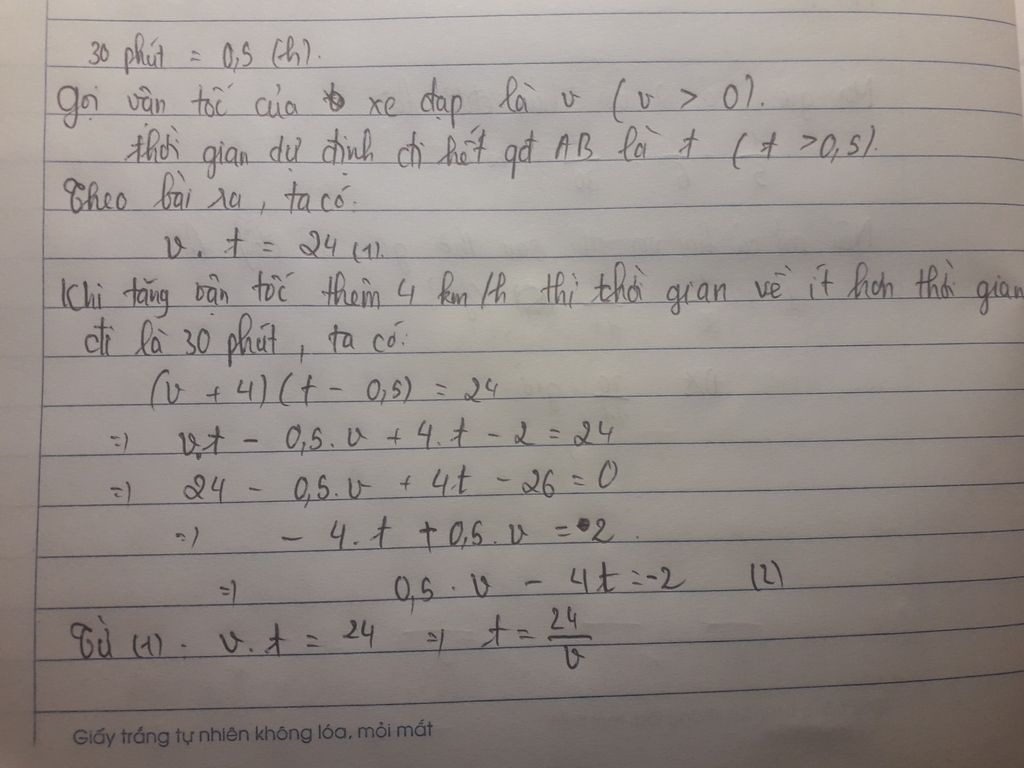 30 phút = 0,5 (h).
Gọi vận tốc của xe đạp là v ( v > 0).
thời gian dự định đi hết qđ AB là t ( t > 0,5).
Theo bài ra, ta có:
v. t = 24 (1).
Khi tăng vận tốc thêm 4 km/h thì thời gian về ít hơn thời gian
đi là 30 phút, ta có:
(v + 4)(t - 0,5) = 24
=> v.t - 0,5.v + 4.t - 2 = 24
=> 24 - 0,5.v + 4t - 26 = 0
=> - 4.t + 0,5.v = -2.
=> 0,5.v - 4t = -2 (2)
Từ (1). v.t = 24 => t = 24/v
Giấy trắng tự nhiên không lóa, mỏi mắt